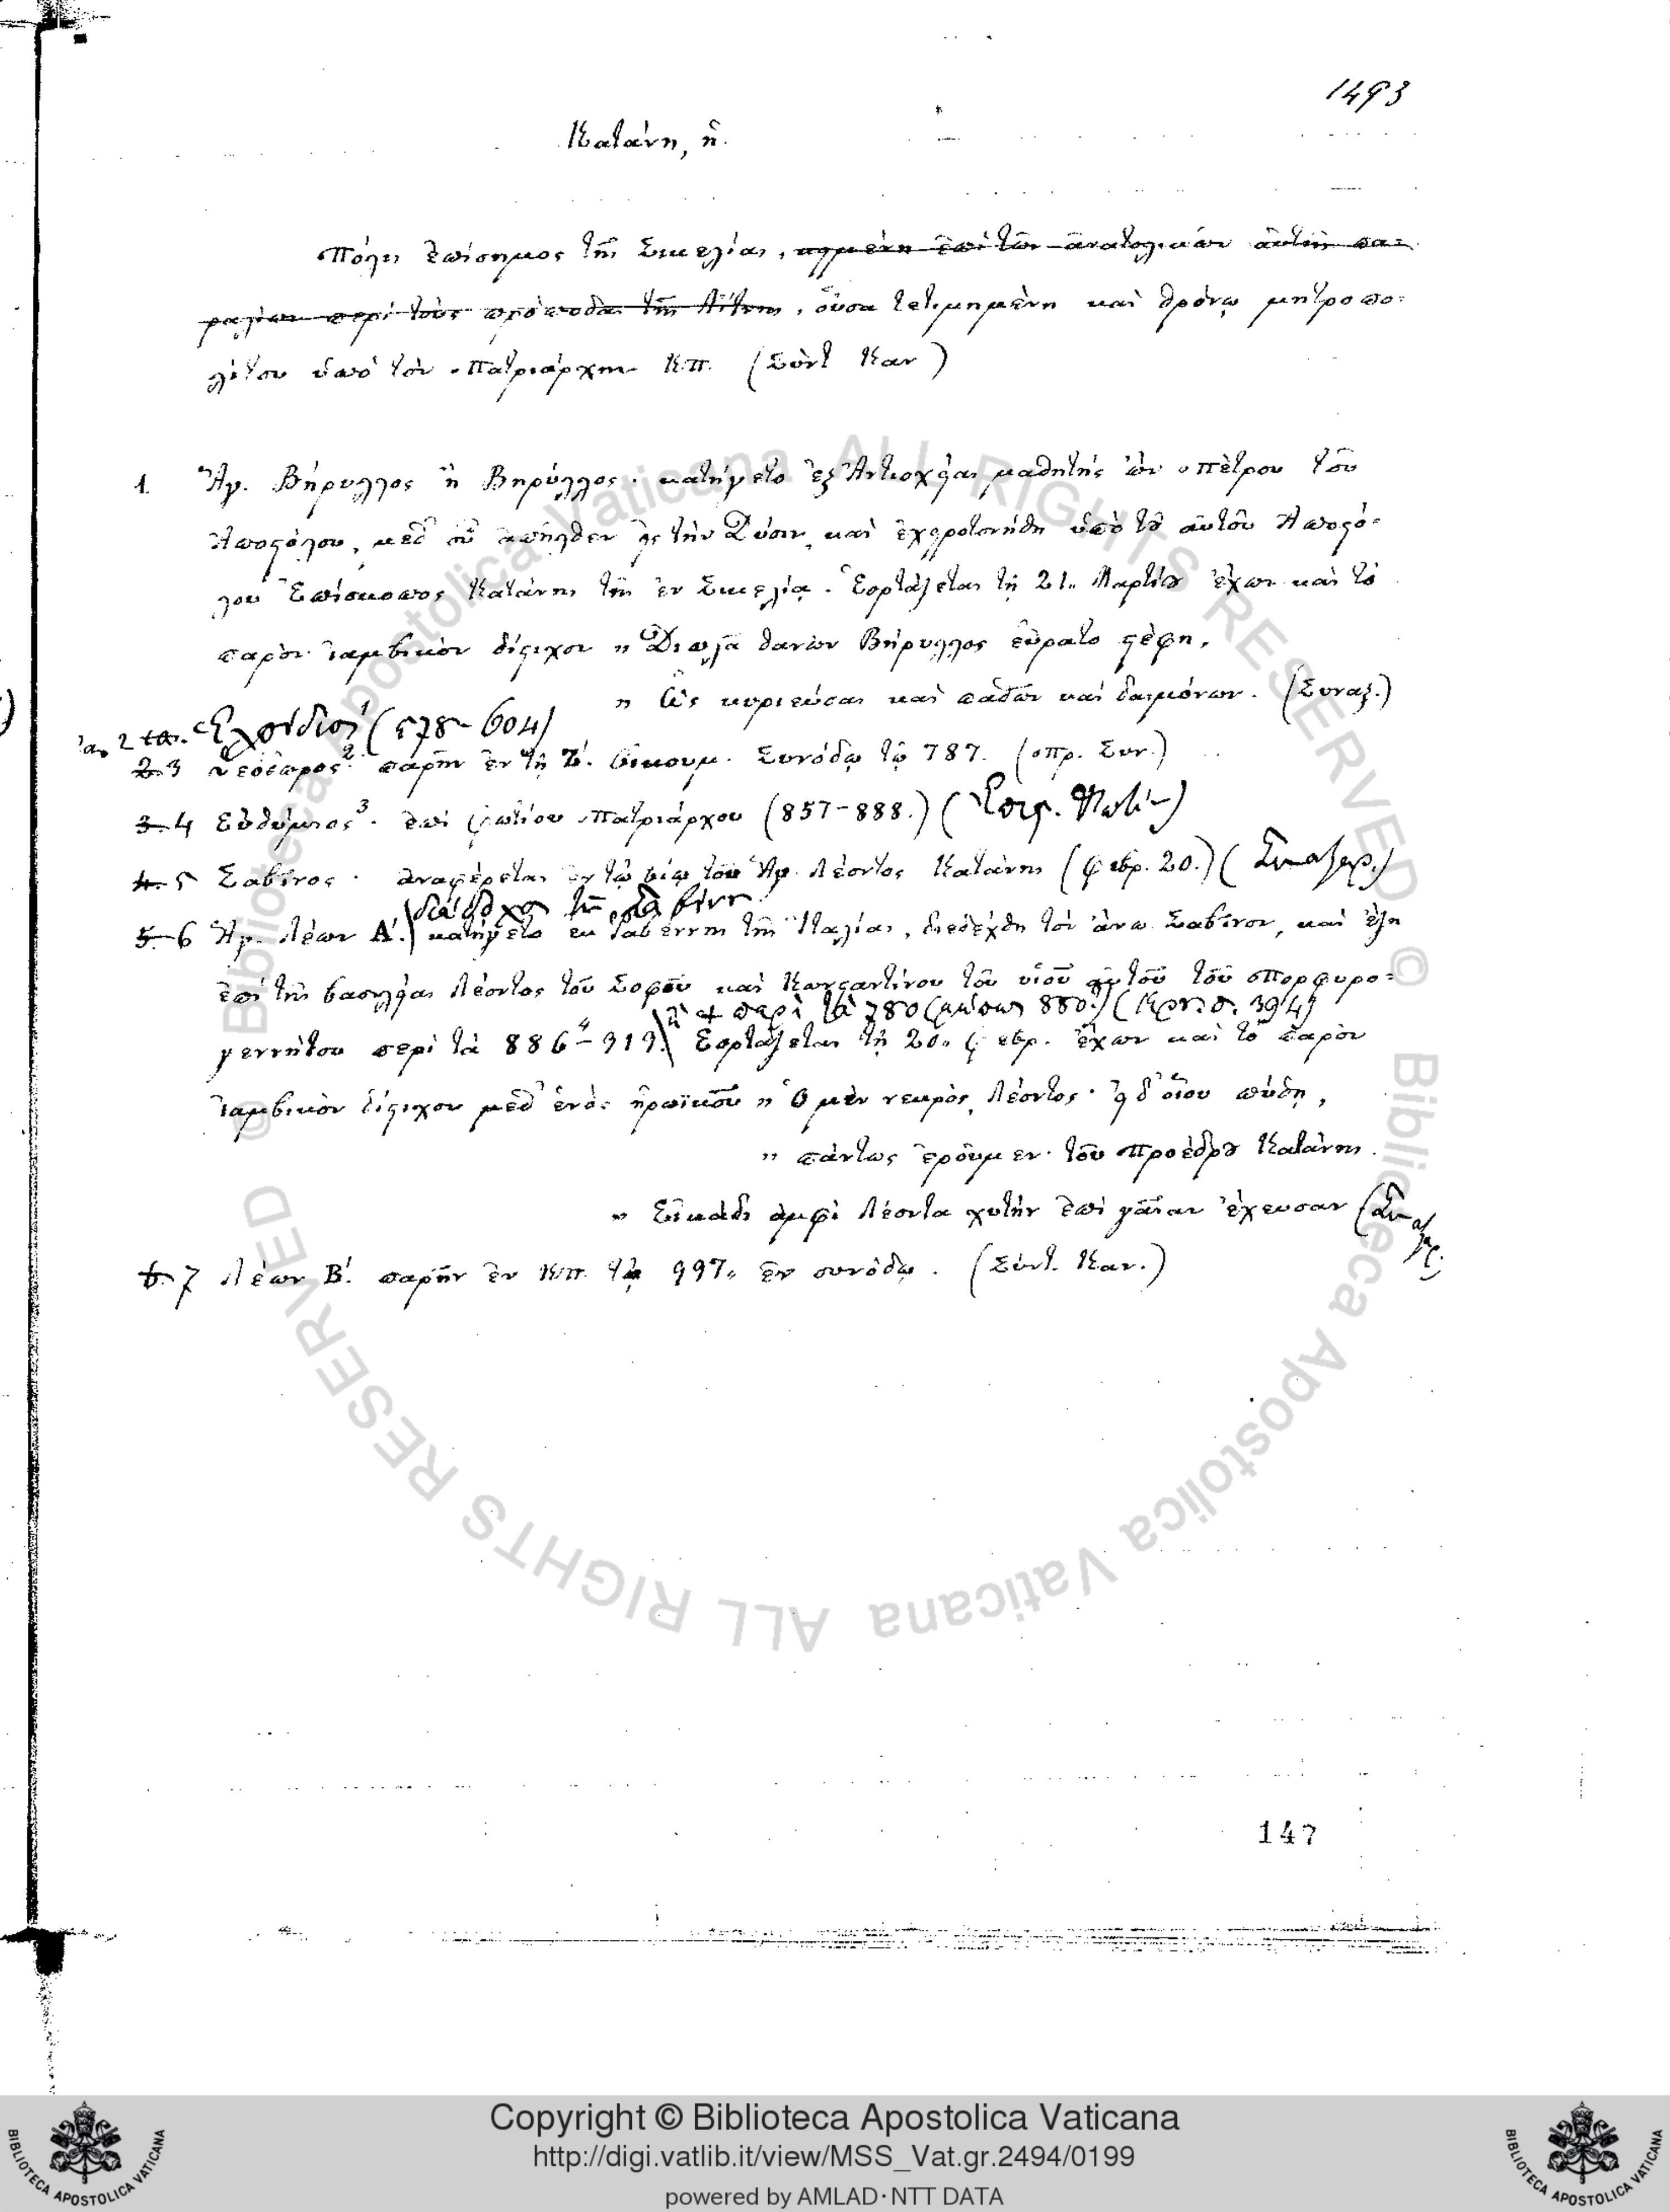 1493
Κατάνη, ἡ.
Πόλις ἐπίσημος τῆς Σικελίας, κειμένη ἐπὶ τῶν ἀνατολικῶν αὐτῆς πα=
ραλίων περὶ τοὺς πρόποδας τῆς Αἴτνης, οὖσα τετιμημένη καὶ θρόνῳ μητροπο=
λίτου ὑπὸ τὸν Πατριάρχην Κπ. (Σύντ Καν)
1. Ἅγ. Βήρυλλος ἢ Βηρύλλος · κατήγετο ἐξ Ἀντιοχείας μαθητὴς ὢν Πέτρου τοῦ
Ἀποστόλου, μεθ' οὗ ἀπῆλθεν εἰς τὴν Δύσιν, καὶ ἐχειροτονήθη ὑπὸ τοῦ αὐτοῦ Ἀποστό=
λου Ἐπίσκοπος Κατάνης τῆς ἐν Σικελίᾳ. Ἑορτάζεται τῇ 21ῃ Μαρτίου ἔχων καὶ τὸ
παρὸν ἰαμβικὸν δίστιχον " Διπλᾶ θανὼν Βήρυλλος εὕρατο στέφη,
" Ὡς κυριεύσας καὶ παθῶν καὶ δαιμόνων. (Συναξ.)
2 Ἐλπίδιος (578-604)
2. 3 Θεόδωρος 2. παρῆν ἐν τῇ Ζ'. Οἰκουμ. Συνόδῳ τῷ 787. (Σπρ. Συν.)
3. 4 Εὐθύμιος 3. ἐπὶ Φωτίου Πατριάρχου (857-888.)
4. 5 Σαβῖνος · ἀναφέρεται ἐν τῷ βίῳ τοῦ Ἁγ. Λέοντος Κατάνης (φεβρ. 20.) (Συναξαρ.)
διάδοχος τοῦ Σαβίνου
5. 6 Ἅγ. Λέων Α'. κατήγετο ἐκ Ῥαβέννης τῆς Ἰταλίας, διεδέχθη τὸν ἄνω Σαβῖνον, καὶ ἔζη
ἐπὶ τῆς βασιλείας Λέοντος τοῦ Σοφοῦ καὶ Κωνσταντίνου τοῦ υἱοῦ αὐτοῦ τοῦ Πορφυρο=
ἢ + περὶ τὰ 780 (μείων 880.) (σ. 394)
γεννήτου περὶ τὰ 886 4 -919. Ἑορτάζεται τῇ 20ῃ φεβρ. ἔχων καὶ τὸ παρὸν
ἰαμβικὸν δίστιχον μεθ' ἑνὸς ἡρωϊκοῦ " Ὁ μὲν νεκρὸς, Λέοντος · εἰ δ' οἵου πύθῃ,
" πάντως ἐροῦμεν· τοῦ Προέδρου Κατάνης.
" Εἰκάδι ἀμφὶ Λέοντα χυτὴν ἐπὶ γαῖαν ἔχευσαν (Συναξαρ.)
6. 7 Λέων Β'. παρῆν ἐν Κπ. τῷ 997ῳ ἐν συνόδῳ. (Σύντ. Καν.)
147
© Biblioteca Apostolica Vaticana ALL RIGHTS RESERVED © Biblioteca Apostolica Vaticana ALL RIGHTS RESERVED
Copyright © Biblioteca Apostolica Vaticana
http://digi.vatlib.it/view/MSS_Vat.gr.2494/0199
powered by AMLAD·NTT DATA
BIBLIOTECA APOSTOLICA VATICANA
BIBLIOTECA APOSTOLICA VATICANA